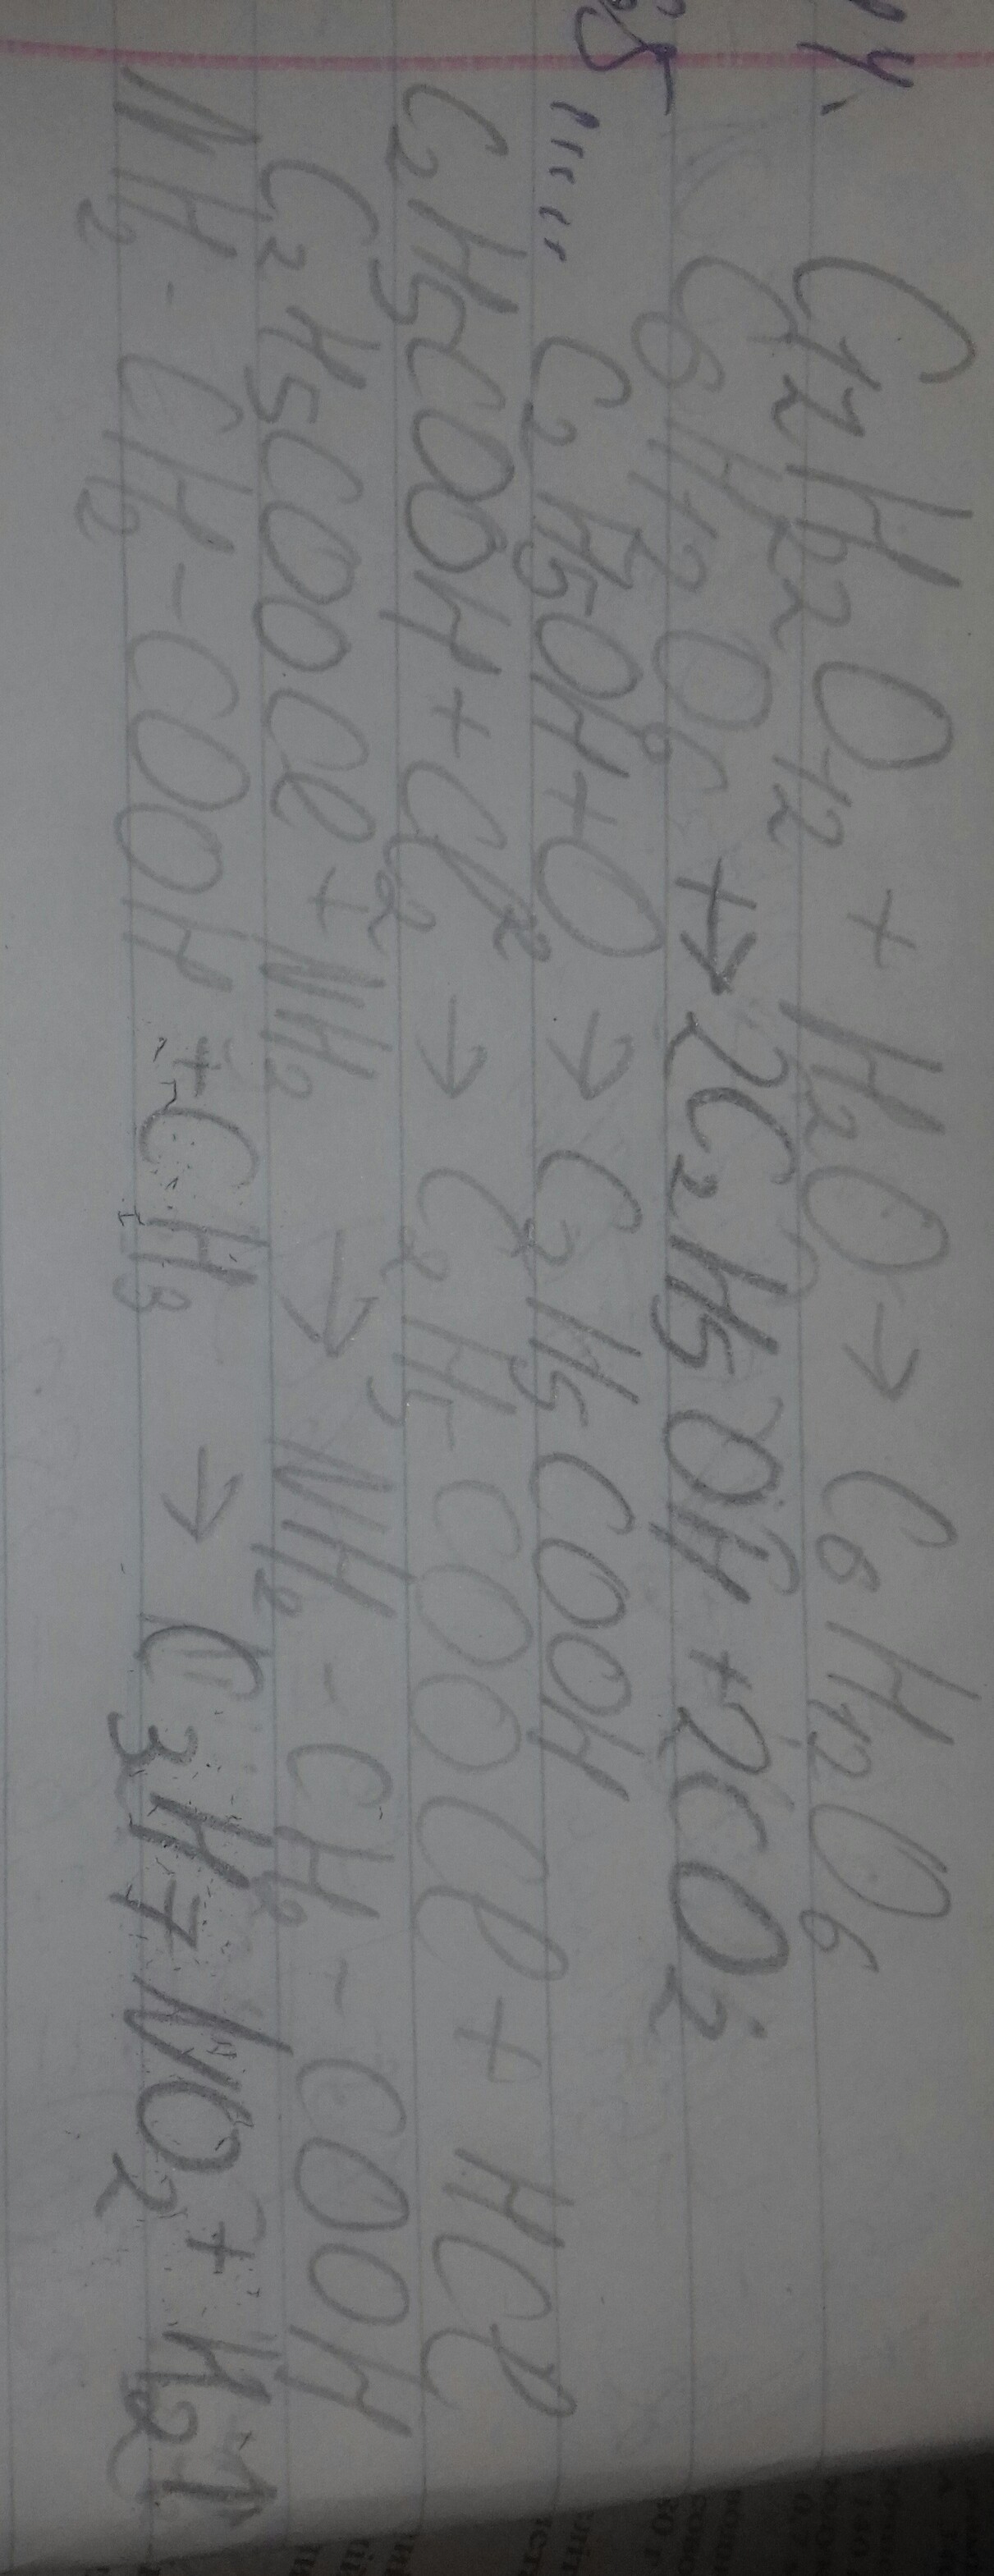 C12H22O12 + H2O → C6H12O6
C6H12O6 +→ 2C2H5OH + 2CO2
C2H5OH + O2 → C2H5COOH
C2H5COOH + Cl2 → C2H5COOCl + HCl
C2H5COOCl + NH2 → NH2 - CH2 - COOH
NH2 - CH2 - COOH + CH3 → C3H7NO2 + H2↑